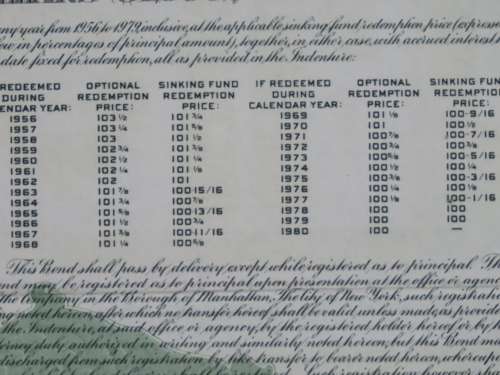 any year from 1956 to 1979, inclusive, at the applicable sinking fund redemption price (expres
in percentages of principal amount), together, in either case, with accrued interest
date fixed for redemption, all as provided in the Indenture:
REDEEMED DURING CALENDAR YEAR: OPTIONAL REDEMPTION PRICE: SINKING FUND REDEMPTION PRICE: IF REDEEMED DURING CALENDAR YEAR: OPTIONAL REDEMPTION PRICE: SINKING FUND REDEMPTION PRICE:
1956 103 1/2 101 3/4 1969 101 1/8 100-9/16
1957 103 1/4 101 5/8 1970 101 100 1/2
1958 103 101 1/2 1971 100 7/8 100-7/16
1959 102 3/4 101 3/8 1972 100 3/4
1960 102 1/2 101 1/4 1973 100 5/8 100-5/16
1961 102 1/4 101 1/8 1974 100 1/2 100 1/4
1962 102 101 1975 100 3/8 100-3/16
1963 101 7/8 100-15/16 1976 100 1/4 100 1/8
1964 101 3/4 100 7/8 1977 100 1/8 100-1/16
1965 101 5/8 100-13/16 1978 100 100
1966 101 1/2 100 3/4 1979 100 100
1967 101 3/8 100-11/16 1980 100 —
1968 101 1/4 100 5/8
This Bond shall pass by delivery except while registered as to principal. Th
may be registered as to principal upon presentation at the office or agen
the Company in the Borough of Manhattan, The City of New York, such registrat
ing noted hereon, after which no transfer hereof shall be valid unless made, as provide
the Indenture, at said office or agency, by the registered holder hereof or by h
attorney duly authorized in writing and similarly noted hereon, but this Bond m
discharged from such registration by like transfer to bearer noted hereon, whereupo
Such registration however, sha